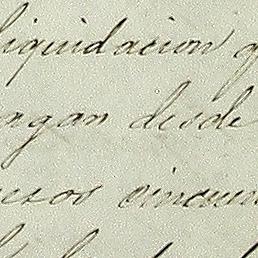 liquidacion q
agan desde
esos cincuen